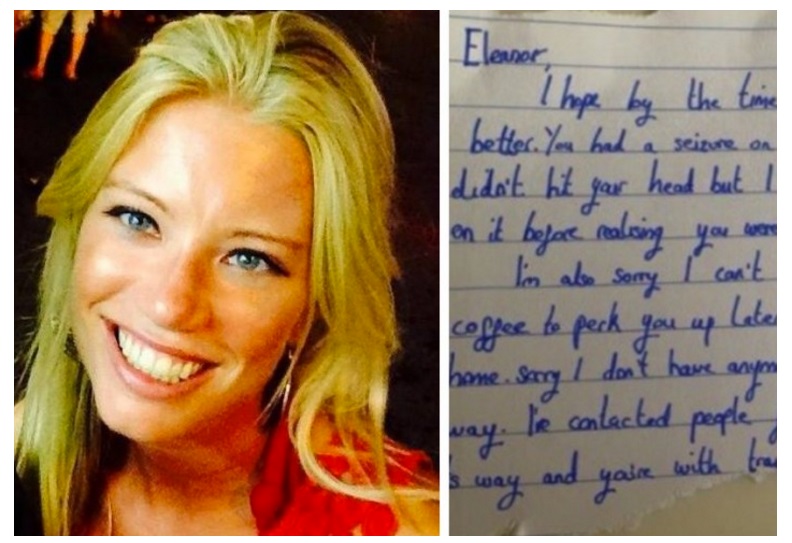 Eleanor,
I hope by the time
better. You had a seizure on
didn't hit your head but I
on it before realising you were
I'm also sorry I can't
coffee to perk you up later
home. Sorry I don't have anym
way. I've contacted people
s way and you're with tra